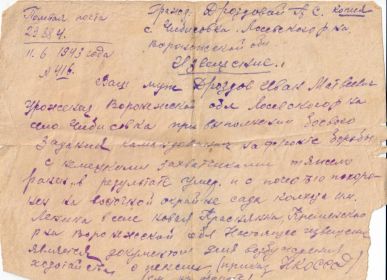 Полевая почта
29884.
11. 6 1943 года
№ 416
Гражд. Дроздовой А. С. копия
с. Чибисовка, Лосевского р-на
Воронежской обл
Извещение.
Ваш муж Дроздов Иван Матвеевич
Уроженец Воронежской обл Лосевского р-на
село Чибисовка при выполнении боевого
задания командования на фронте борьбы
с немецкими захватчиками тяжело
ранен, в результате умер. и с похоро
нен на восточной окрайне сада колхоза им.
Ленина в селе новая
р-на Воронежской обл Настоящее извещение
является документом для возбуждения
ходатайства о пенсии (приказ НКО СССР)